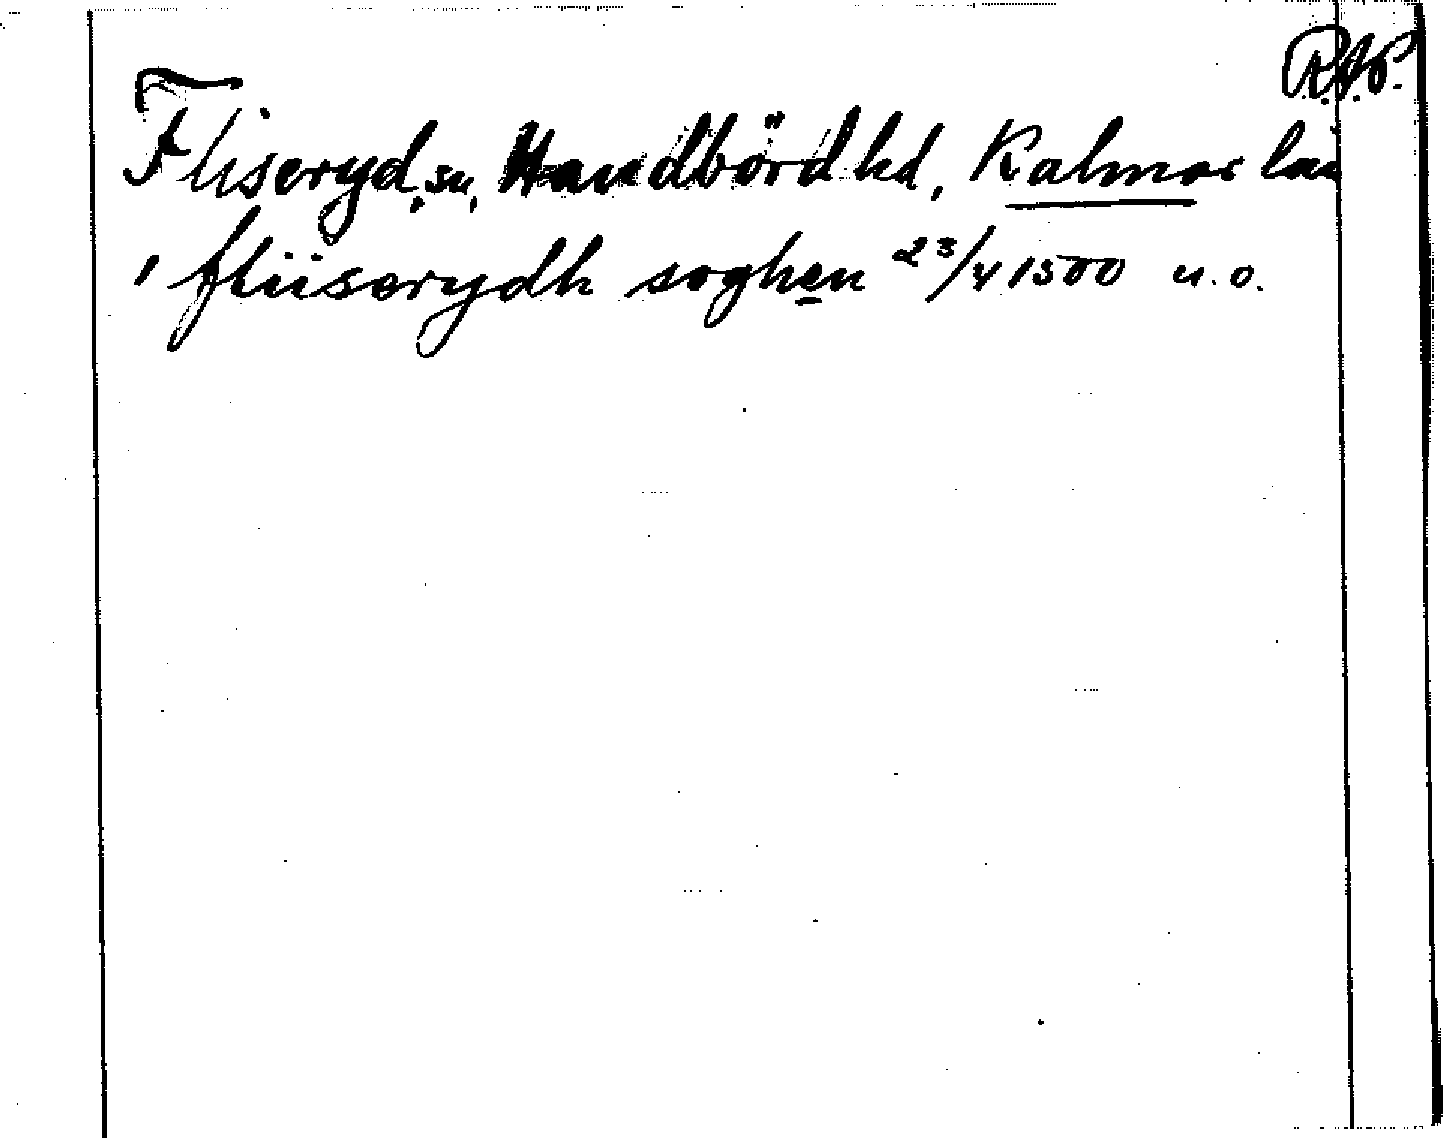 R.A.P.
Fliseryd, sn, Handbörd hd, Kalmar län
, fliiserydh soghen 23/4 1500 u.o.